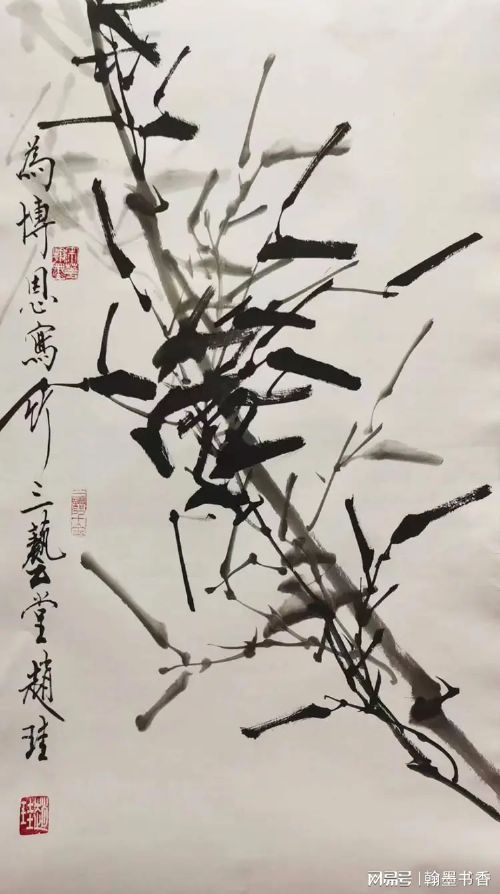 為博恩寫竹三藝堂趙珪
趙珪
网易号 | 翰墨书香